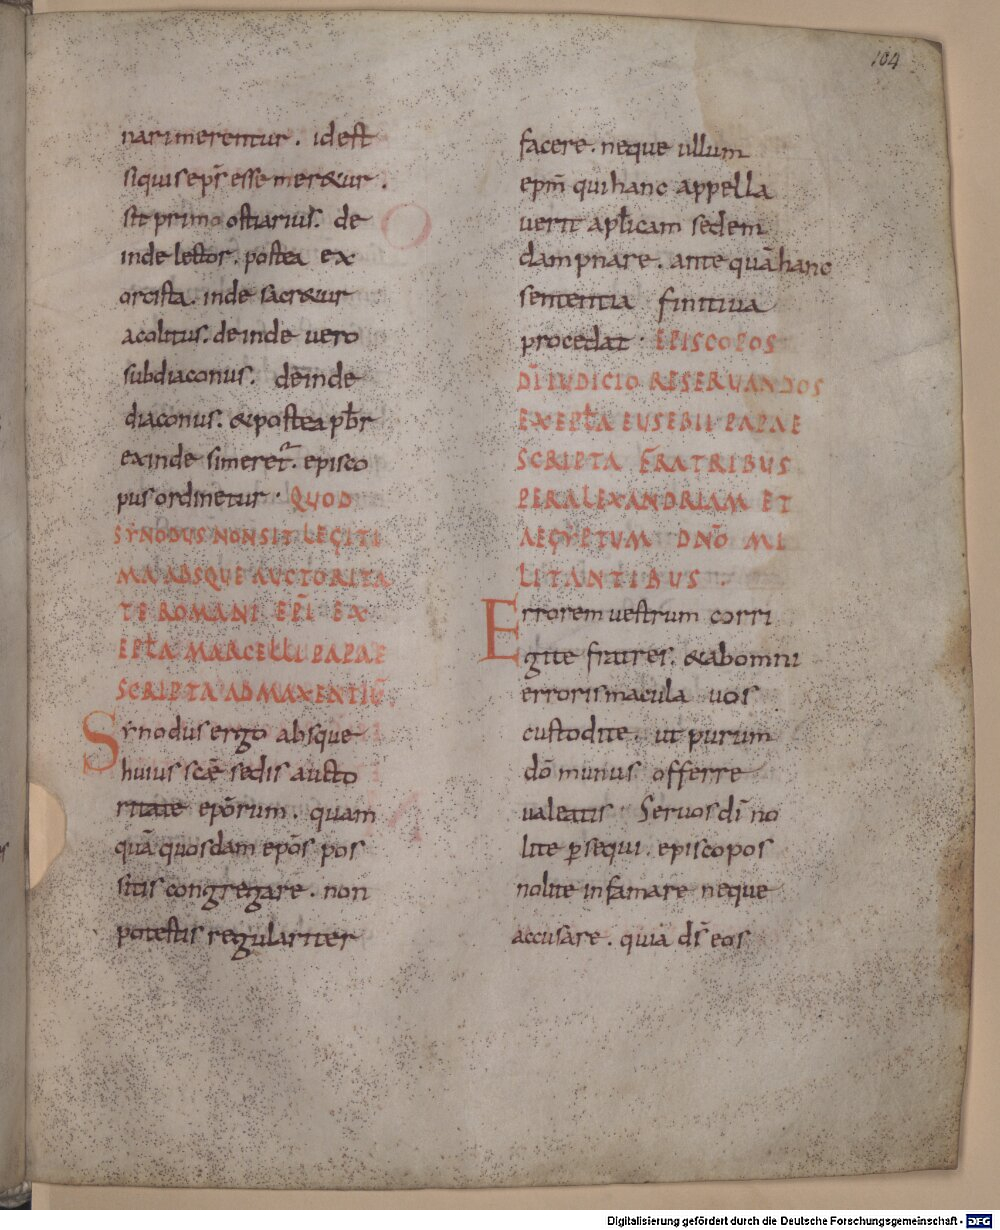 104
nari merentur. id est
siquis ep̄s esse mer&ur.
sit primo ostiarius. de
inde lector. postea ex
orcista. inde sacr&ur
acolitus. deinde vero
subdiaconus. deinde
diaconus. &postea pb̄r
exinde simeret᷑. episco
pus ordinetur. QUOD
SYNODUS NON SIT LEGITI
MA ABSQUE AUCTORITA
TE ROMANI EP̄I EX
EPŁA MARCELLI PAPAE
SCRIPTA AD MAXENTIŪ
Synodus ergo absque
huius scǣ sedis aucto
ritate epōrum. quam
quā quosdam epōs pos
sitis congregare. non
potestis regulariter
facere. neque ullum
epm̄ qui hanc appella
verit apłicam sedem
dampnare. ante quā hanc
sententia finitiva
procedat. EPISCOPOS
DĪ IUDICIO RESERUANDOS
EX EPŁA EUSEBII PAPAE
SCRIPTA FRATRIBUS
PER ALEXANDRIAM ET
AEGYPTUM DNŌ MI
LITANTIBUS.
Errorem vestrum corri
gite fratres. &abomni
erroris macula vos
custodite. ut purum
dō munus offerre
valeatis Servos dī no
lite ꝑsequi. episcopos
nolite infamare neque
accusare. quia ds̄ eos
Digitalisierung gefördert durch die Deutsche Forschungsgemeinschaft - DFG